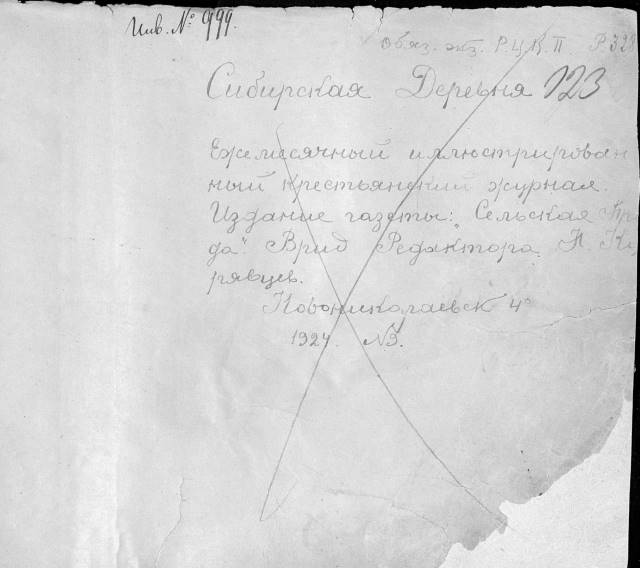 Инв. № 999.
Обяз. экз. Р.Ц.К.П. Р.328
Сибирская Деревня 123
Ежемесячный иллюстрирован
ный крестьянский журнал.
Издание газеты: "Сельская Пра
да". Врид Редактора П. Ко
рявцев.
Новониколаевск 4°
1924. №3.